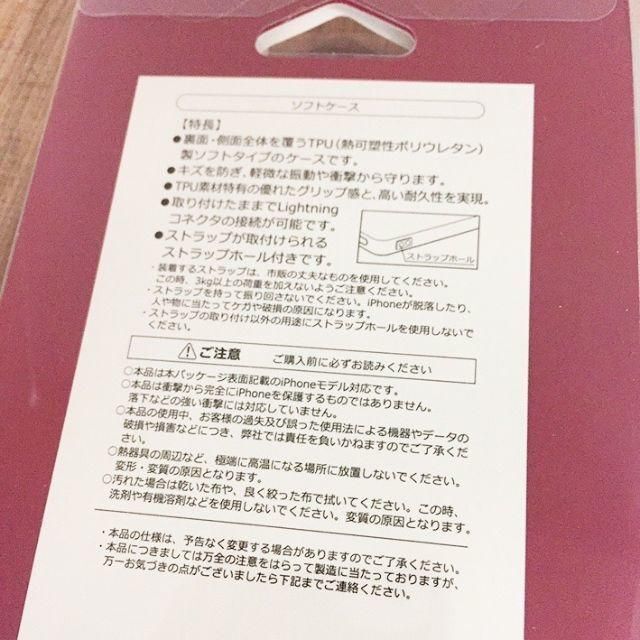 ソフトケース
【特長】
●裏面・側面全体を覆うTPU(熱可塑性ポリウレタン)
製ソフトタイプのケースです。
●キズを防ぎ、軽微な振動や衝撃から守ります。
●TPU素材特有の優れたグリップ感と、高い耐久性を実現。
●取り付けたままでLightning
コネクタの接続が可能です。
●ストラップが取付けられる
ストラップホール付きです。
ストラップホール
・装着するストラップは、市販の丈夫なものを使用してください。
この時、3kg以上の荷重を加えないようご注意ください。
・ストラップを持って振り回さないでください。iPhoneが脱落したり、
人や物に当たってケガや破損の原因になります。
・ストラップの取り付け以外の用途にストラップホールを使用しないで
ください。
ご注意 ご購入前に必ずお読みください
○本品は本パッケージ表面記載のiPhoneモデル対応です。
○本品は衝撃から完全にiPhoneを保護するものではありません。
落下などの強い衝撃には対応していません。
○本品の使用中、お客様の過失及び誤った使用法による機器やデータの
破損や損害などにつき、弊社では責任を負いかねますのでご了承くだ
さい。
○熱器具の周辺など、極端に高温になる場所に放置しないでください。
変形・変質の原因となります。
○汚れた場合は乾いた布や、良く絞った布で拭いてください。この時、
洗剤や有機溶剤などを使用しないでください。変質の原因となります。
・本品の仕様は、予告なく変更する場合がありますのでご了承ください。
・本品につきましては万全の注意をはらって製造に当たっておりますが、
万一お気づきの点がございましたら下記までご連絡ください。